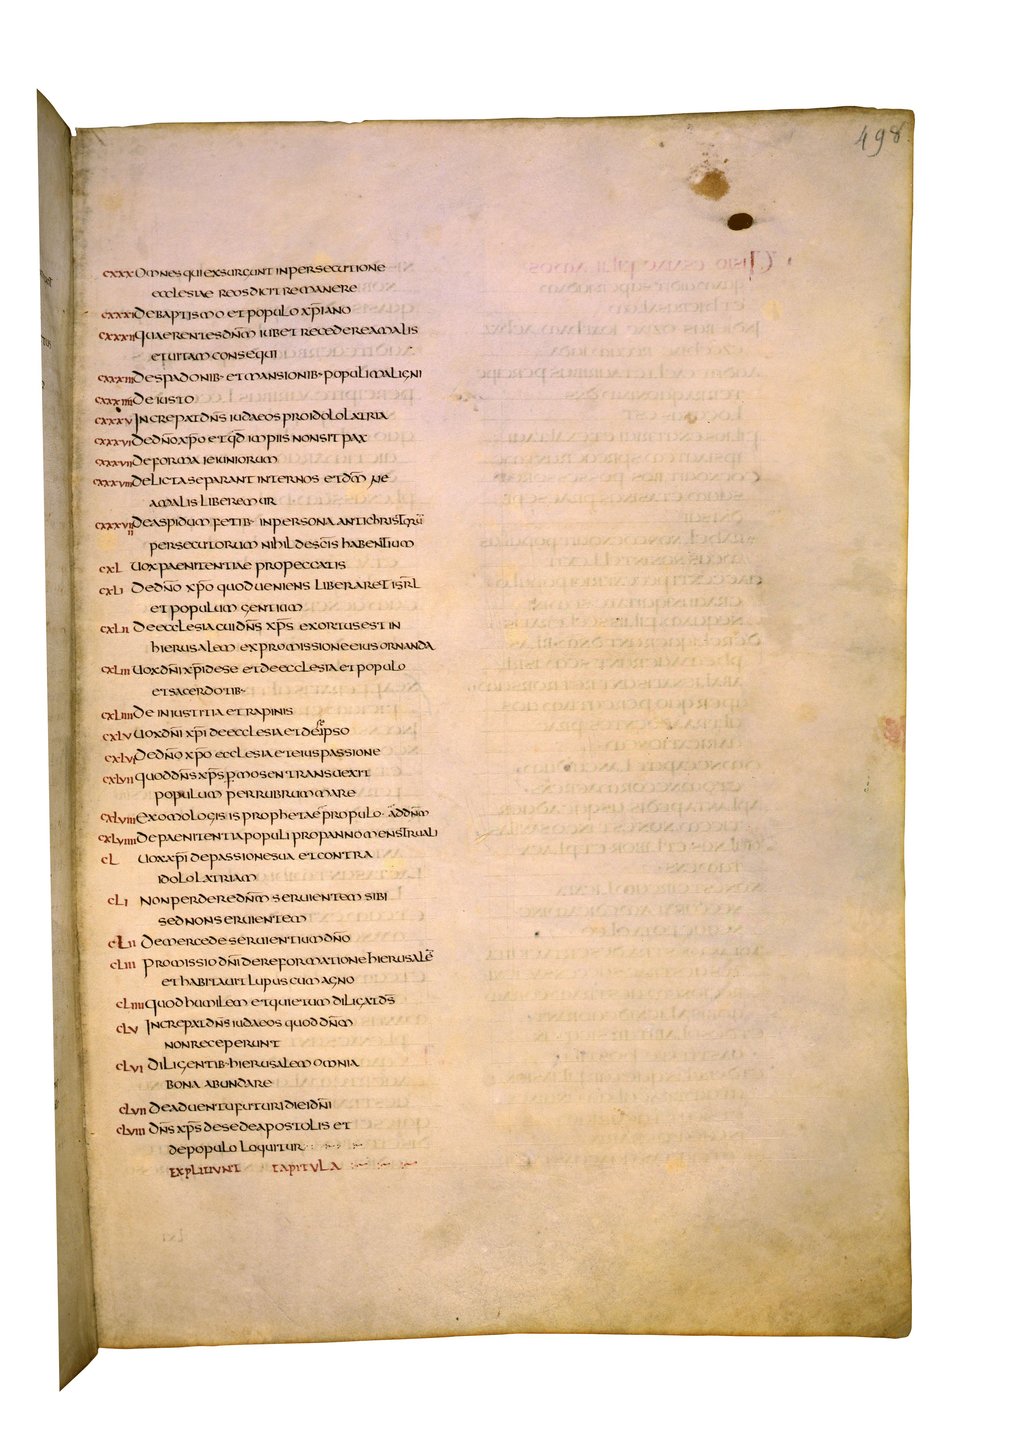 498
cxxx Omnes qui exsurgunt in persecutione
ecclesiae reos dicit remanere
cxxxi De baptismo et populo xp̄iano
cxxxii Quaerentes dn̄m iubet recedere a malis
et uitam consequi
cxxxiii De spadonib· et mansionib· populi maligni
cxxxiiii De iusto
cxxxv Increpat dn̄s iudaeos pro idololatria
cxxxvi De dn̄o xp̄o et qd̄ impiis non sit pax
cxxxvii De forma ieiuniorum
cxxxviii Delicta separant inter nos et dm̄ ne
a malis liberemur
cxxxviiii De aspidum fetib· in persona antichristi qui
persecutorum nihil de sc̄is habentium
cxl Uox paenitentiae pro peccatis
cxli De dn̄o xp̄o quod ueniens liberaret isrl̄
et populum gentium
cxlii De ecclesia cui dn̄s xp̄s exortus est in
hierusalem ex promissione eius ornanda
cxliii Uox dn̄i xp̄i de se et de ecclesia et populo
et sacerdotib·
cxliiii De iniustitia et rapinis
cxlv Uox dn̄i xp̄i de ecclesia et de se ipso
cxlvi De dn̄o xp̄o ecclesia et eius passione
cxlvii Quod dn̄s xp̄s p mosen transuexit
populum per rubrum mare
cxlviii Exomologisis prophetae pro pulo· ad dn̄m
cxlviiii De paenitentia populi pro panno menstruali
cl Uox xp̄i de passione sua et contra
idololatriam
cli Non perdere dn̄m seruientem sibi
sed non seruientem
clii De mercede seruientium dn̄o
cliii Promissio dn̄i de reformatione hierusalē
et habitauri lupus cum agno
cliiii Quod humilem et quietum diligat ds̄
clv Increpat dn̄s iudaeos quod dn̄m
non receperunt
clvi Diligentib· hierusalem omnia
bona abundare
clvii De aduentu futuri diei dn̄i
clviii Dn̄s xp̄s de se de apostolis et
de populo loquitur
EXPLICIUNT CAPITULA